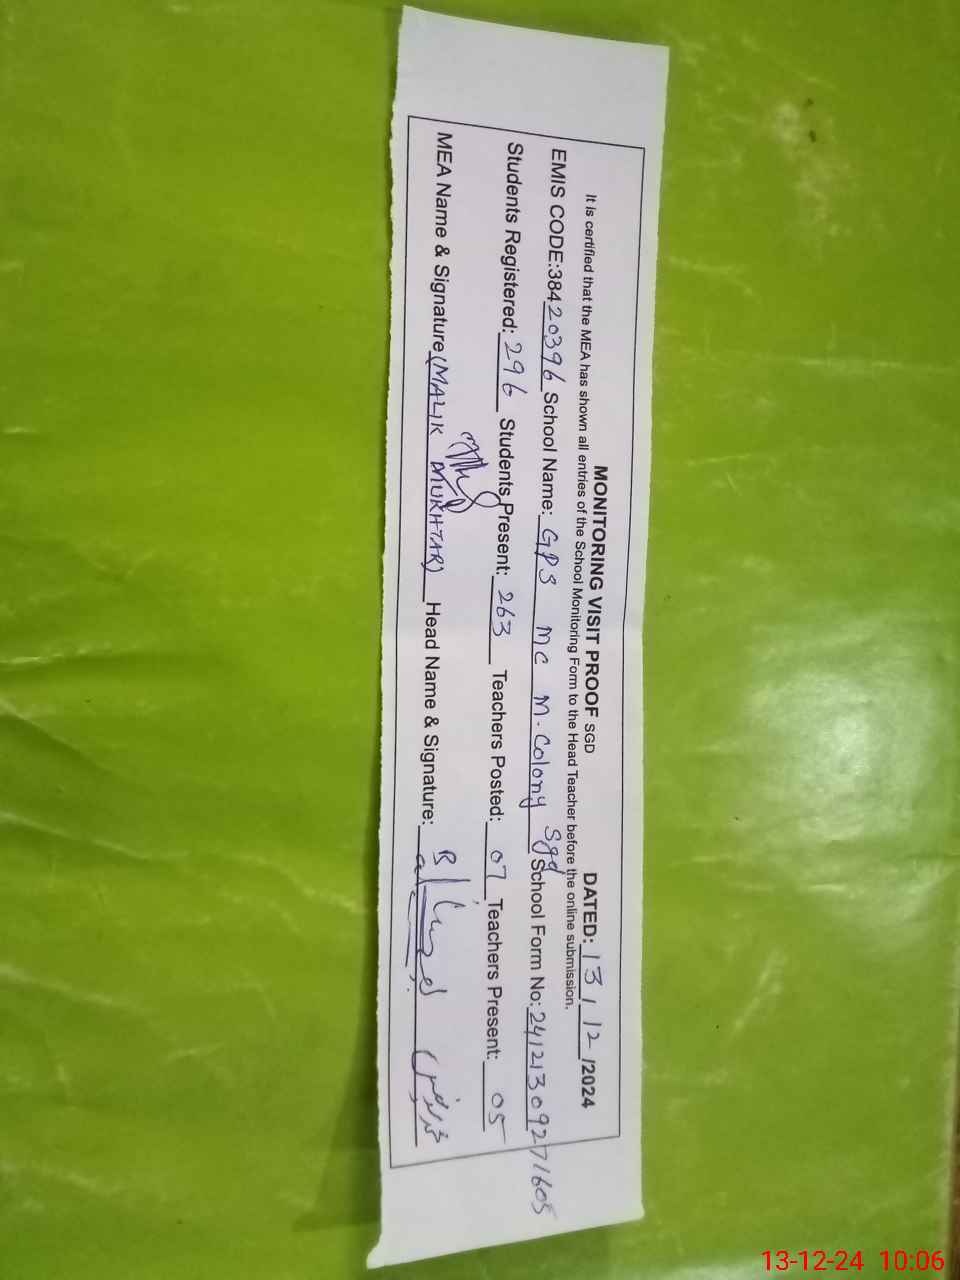 MONITORING VISIT PROOF SGD DATED: 13 / 12 /2024
It is certified that the MEA has shown all entries of the School Monitoring Form to the Head Teacher before the online submission.
EMIS CODE:38420396 School Name: GPS MC M. Colony Sgd School Form No: 24121309271605
Students Registered: 296 Students Present: 263 Teachers Posted: 07 Teachers Present: 05
MEA Name & Signature (MALIK MUKHTAR) Head Name & Signature:
13-12-24 10:06